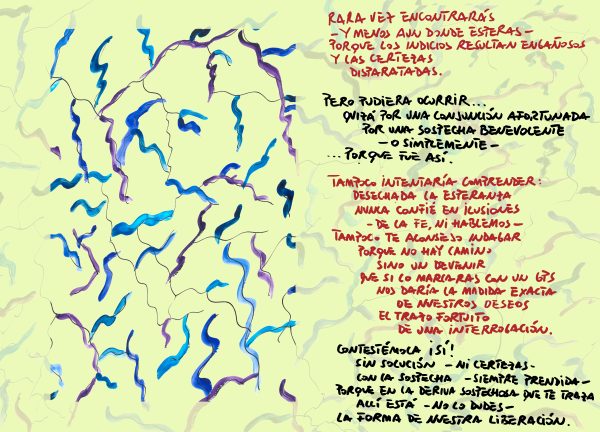 RARA VEZ ENCONTRARÁS
- Y MENOS AUN DONDE ESPERAS -
PORQUE LOS INDICIOS RESULTAN ENGAÑOSOS
Y LAS CERTEZAS
DISPARATADAS.
PERO PUDIERA OCURRIR...
QUIZÁ POR UNA CONJUNCIÓN AFORTUNADA
POR UNA SOSPECHA BENEVOLENTE
- O SIMPLEMENTE -
...PORQUE FUE ASÍ.
TAMPOCO INTENTARÍA COMPRENDER:
DESECHADA LA ESPERANZA
NUNCA CONFIÉ EN ILUSIONES
- DE LA FE, NI HABLEMOS -
TAMPOCO TE ACONSEJO INDAGAR
PORQUE NO HAY CAMINO
SINO UN DEVENIR
QUE SI LO MARCARAS CON UN GPS
NOS DARÍA LA MADIDA EXACTA
DE NUESTROS DESEOS
EL TRAZO FORTUITO
DE UNA INTERROGACIÓN.
CONTESTÉMOCLA ¡SÍ!
SIN SOLUCIÓN - NI CERTEZAS -
CON LA SOSPECHA - SIEMPRE PRENDIDA -
PORQUE EN LA DERIVA SOSPECHOSA QUE TE TRAZA
ALLÍ ESTÁ - NO LO DUDES -
LA FORMA DE NUESTRA LIBERACIÓN.